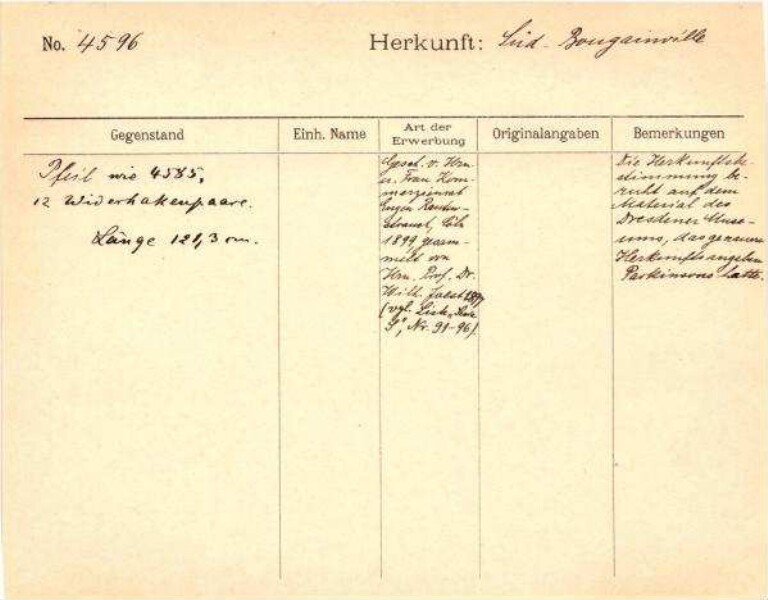 No. 4596
Herkunft: Süd-Bougainville
Gegenstand
Einh. Name
Art der Erwerbung
Originalangaben
Bemerkungen
Pfeil wie 4585,
12 Widerhakenpaare.
Länge 121,3 cm.
Gesch. v. Hrn.
u. Frau Kom-
merzienrat
Eugen Rauten-
strauch, Cöln
1899, gesam-
melt von
Hrn. Prof. Dr.
Wilh. Joest 1897
(vgl. Liste
S", Nr. 91-96).
Die Herkunftsbe-
stimmung be-
ruht auf dem
Material des
Dresdener Muse-
ums, das genauere
Herkunftsangaben
Parkinsons hatte.